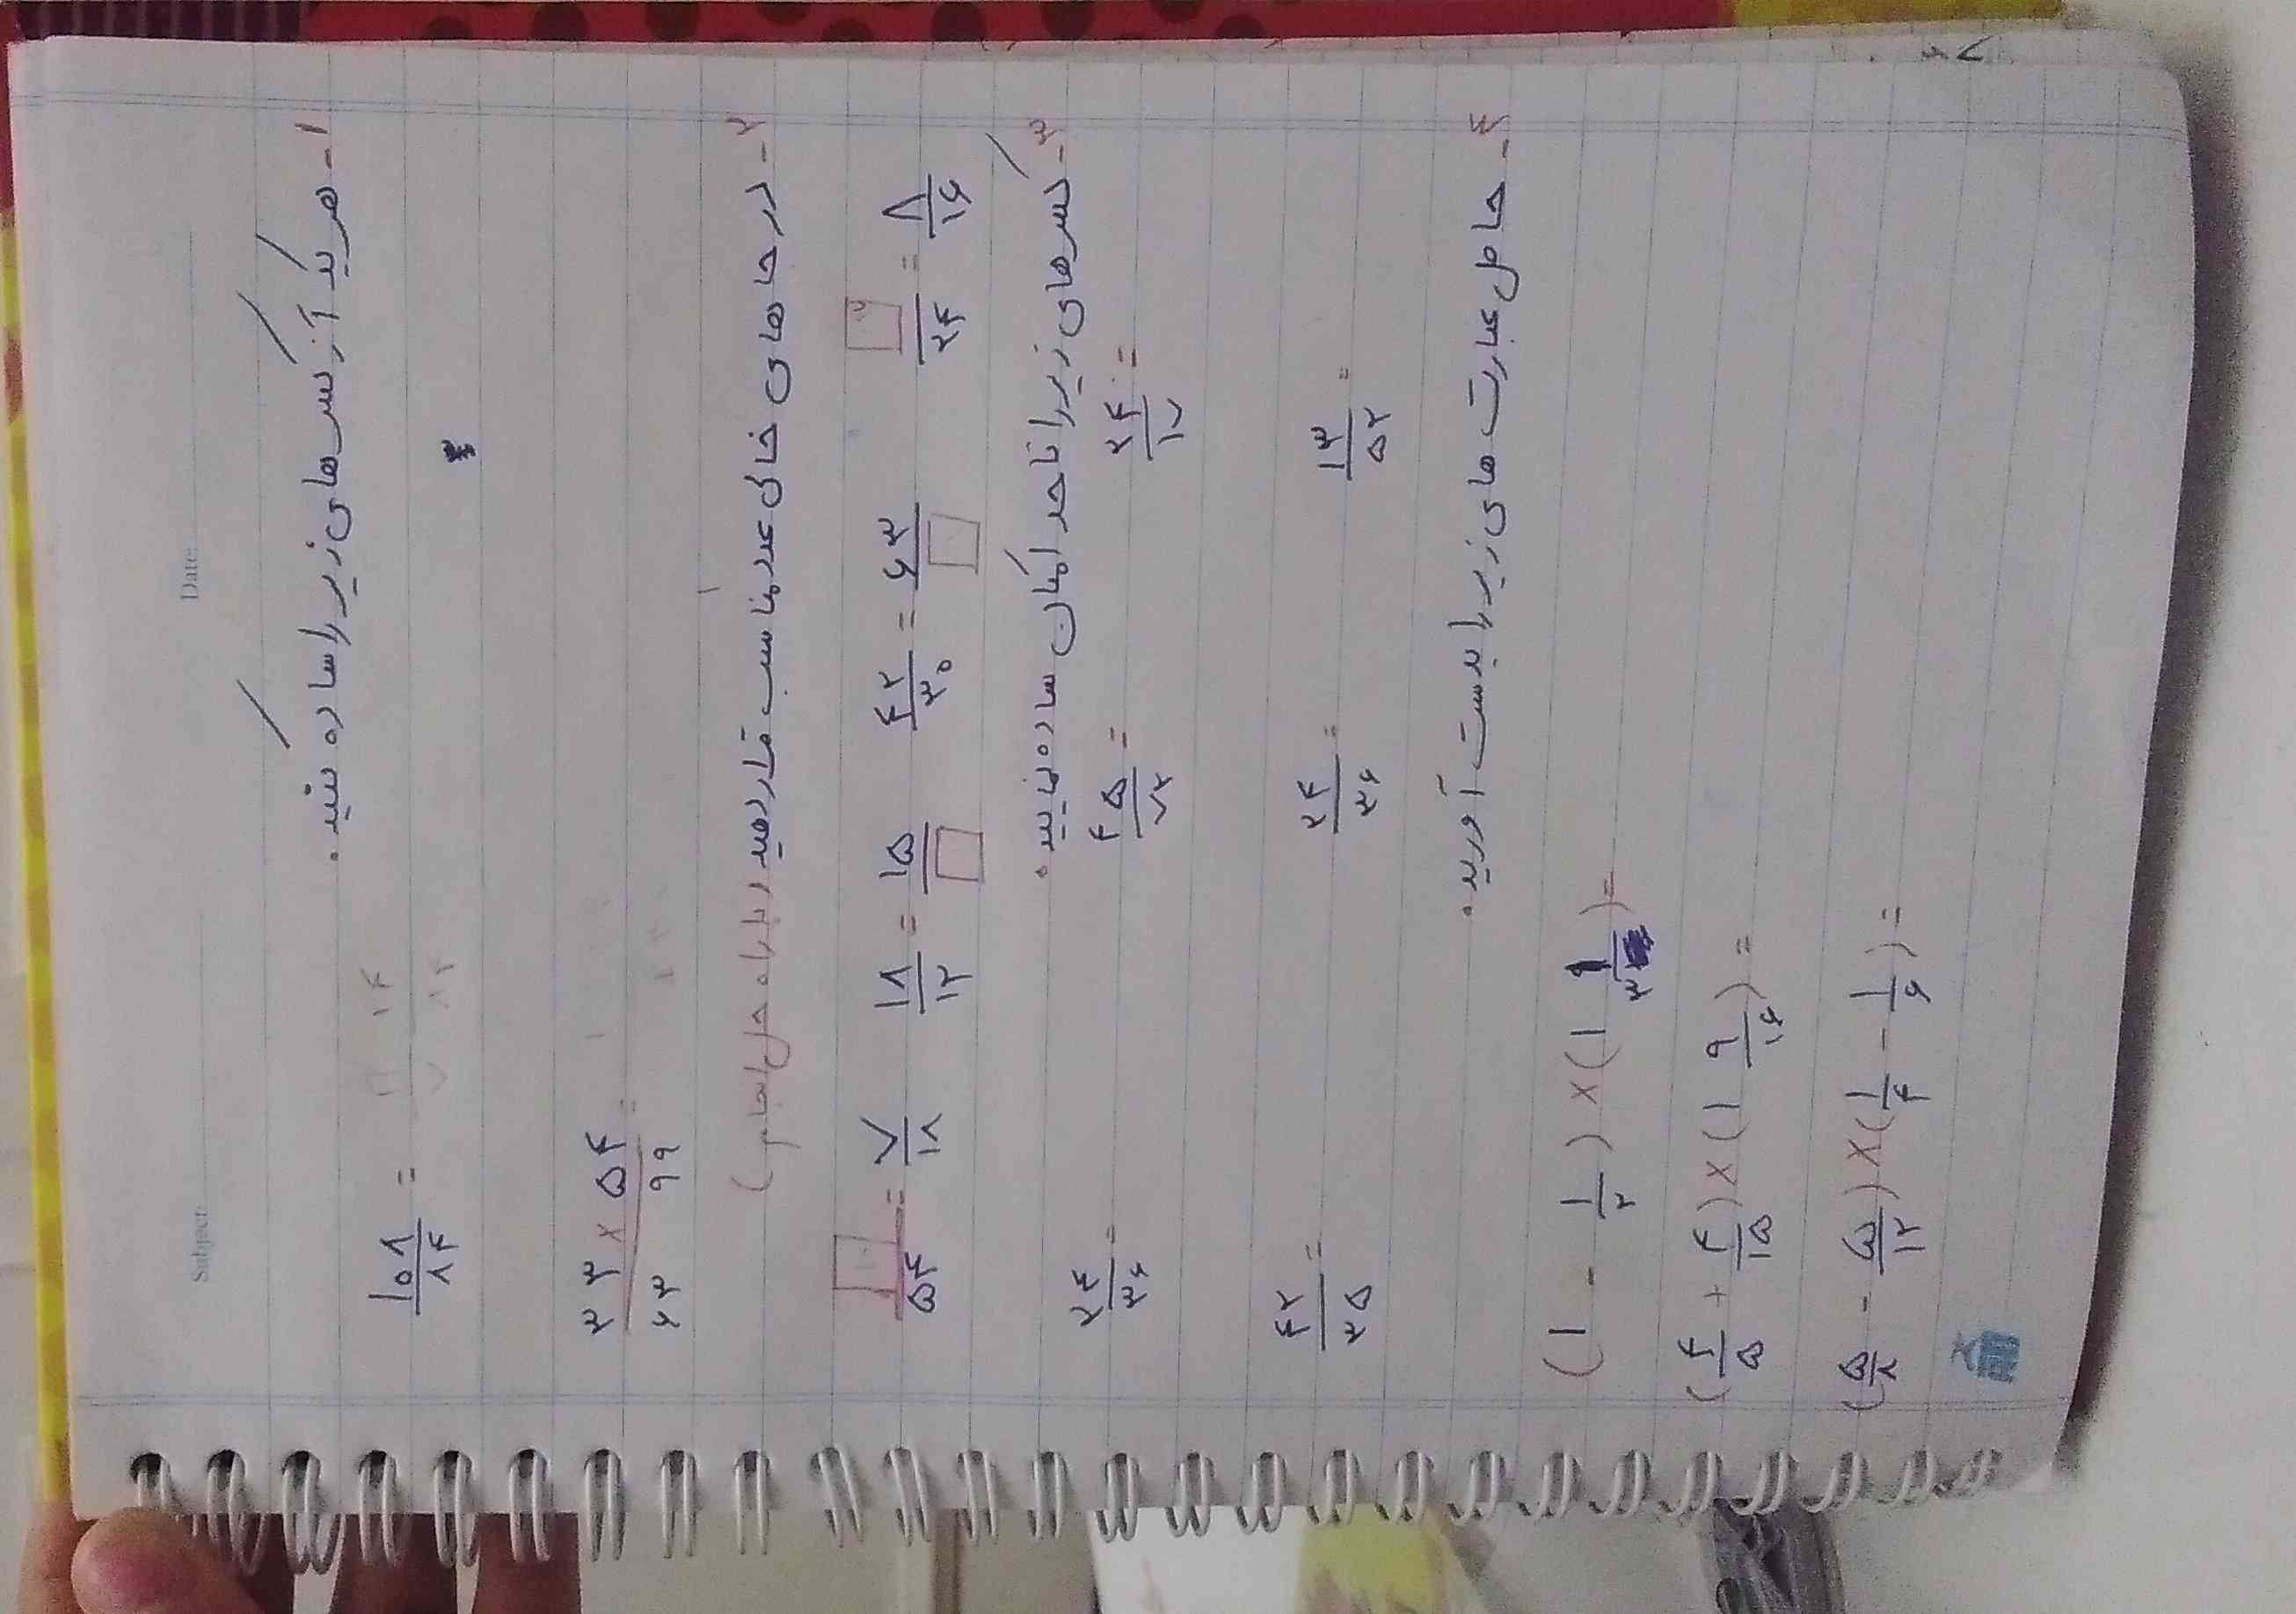 Subject: Date:
۱- هر یک از کسرهای زیر را ساده کنید.
۱۰۸/۸۴ =
۳۳×۵۴ / ۶۳ ۹۹ =
۲- در جاهای خالی عدد مناسب قرار دهید (با راه حل انجام)
□/۵۴ = ۷/۱۸ ۱۸/۱۲ = ۱۵/□ ۴۲/۳۰ = ۶۳/□ □/۲۴ = ۸/۱۶
۳- کسرهای زیر را تا حد امکان ساده نمایید.
۲۴/۳۶ = ۴۵/۷۲ = ۲۴/۱۷ =
۴۲/۳۵ = ۲۴/۳۶ = ۱۳/۵۲ =
۴- حاصل عبارت های زیر را بدست آورید.
(۱ - ۱/۲) × (۱ ۱/۳) =
(۴/۵ + ۴/۱۵) × (۱ ۹/۱۶) =
(۵/۸ - ۵/۱۲) × (۱/۴ - ۱/۶) =